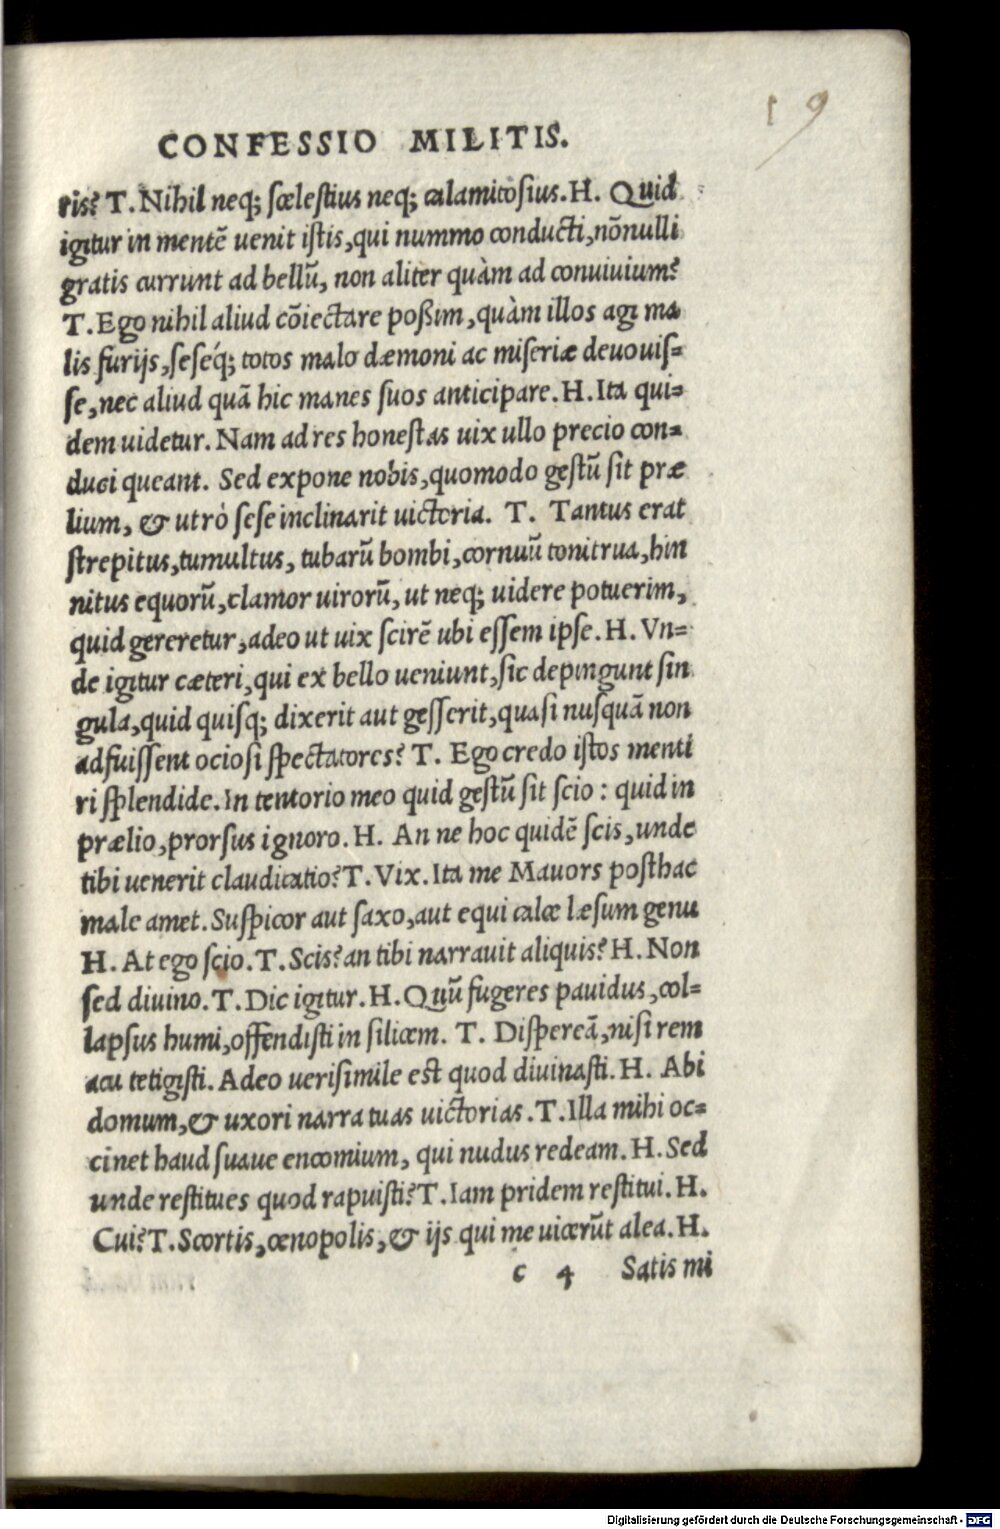 19
CONFESSIO MILITIS.
ris? T. Nihil neq; scelestius neq; calamitosius. H. Quid
igitur in mentē uenit istis, qui nummo conducti, nōnulli
gratis currunt ad bellū, non aliter quàm ad conuiuium?
T. Ego nihil aliud cōiectare poßim, quàm illos agi ma
lis furijs, seséq; totos malo dæmoni ac miseriæ deuouis=
se, nec aliud quā hic manes suos anticipare. H. Ita qui=
dem uidetur. Nam ad res honestas uix ullo precio con=
duci queant. Sed expone nobis, quomodo gestū sit præ
lium, & utrò sese inclinarit uictoria. T. Tantus erat
strepitus, tumultus, tubarū bombi, cornuū tonitrua, hin
nitus equorū, clamor uirorū, ut neq; uidere potuerim,
quid gereretur, adeo ut uix scirē ubi essem ipse. H. Vn=
de igitur cæteri, qui ex bello ueniunt, sic depingunt sin
gula, quid quisq; dixerit aut gesserit, quasi nusquā non
adfuissent ociosi spectatores? T. Ego credo istos menti
ri splendide. In tentorio meo quid gestū sit scio: quid in
prælio, prorsus ignoro. H. An ne hoc quidē scis, unde
tibi uenerit claudicatio? T. Vix. Ita me Mauors posthac
male amet. Suspicor aut saxo, aut equi calce læsum genu
H. At ego scio. T. Scis? an tibi narrauit aliquis? H. Non
sed diuino. T. Dic igitur. H. Quū fugeres pauidus, col=
lapsus humi, offendisti in silicem. T. Dispereā, nisi rem
acu tetigisti. Adeo uerisimile est quod diuinasti. H. Abi
domum, & uxori narra tuas uictorias. T. Illa mihi oc=
cinet haud suaue encomium, qui nudus redeam. H. Sed
unde restitues quod rapuisti? T. Iam pridem restitui. H.
Cui? T. Scortis, œnopolis, & ijs qui me uicerūt alea. H.
c 4 Satis mi
Digitalisierung gefördert durch die Deutsche Forschungsgemeinschaft - DFG